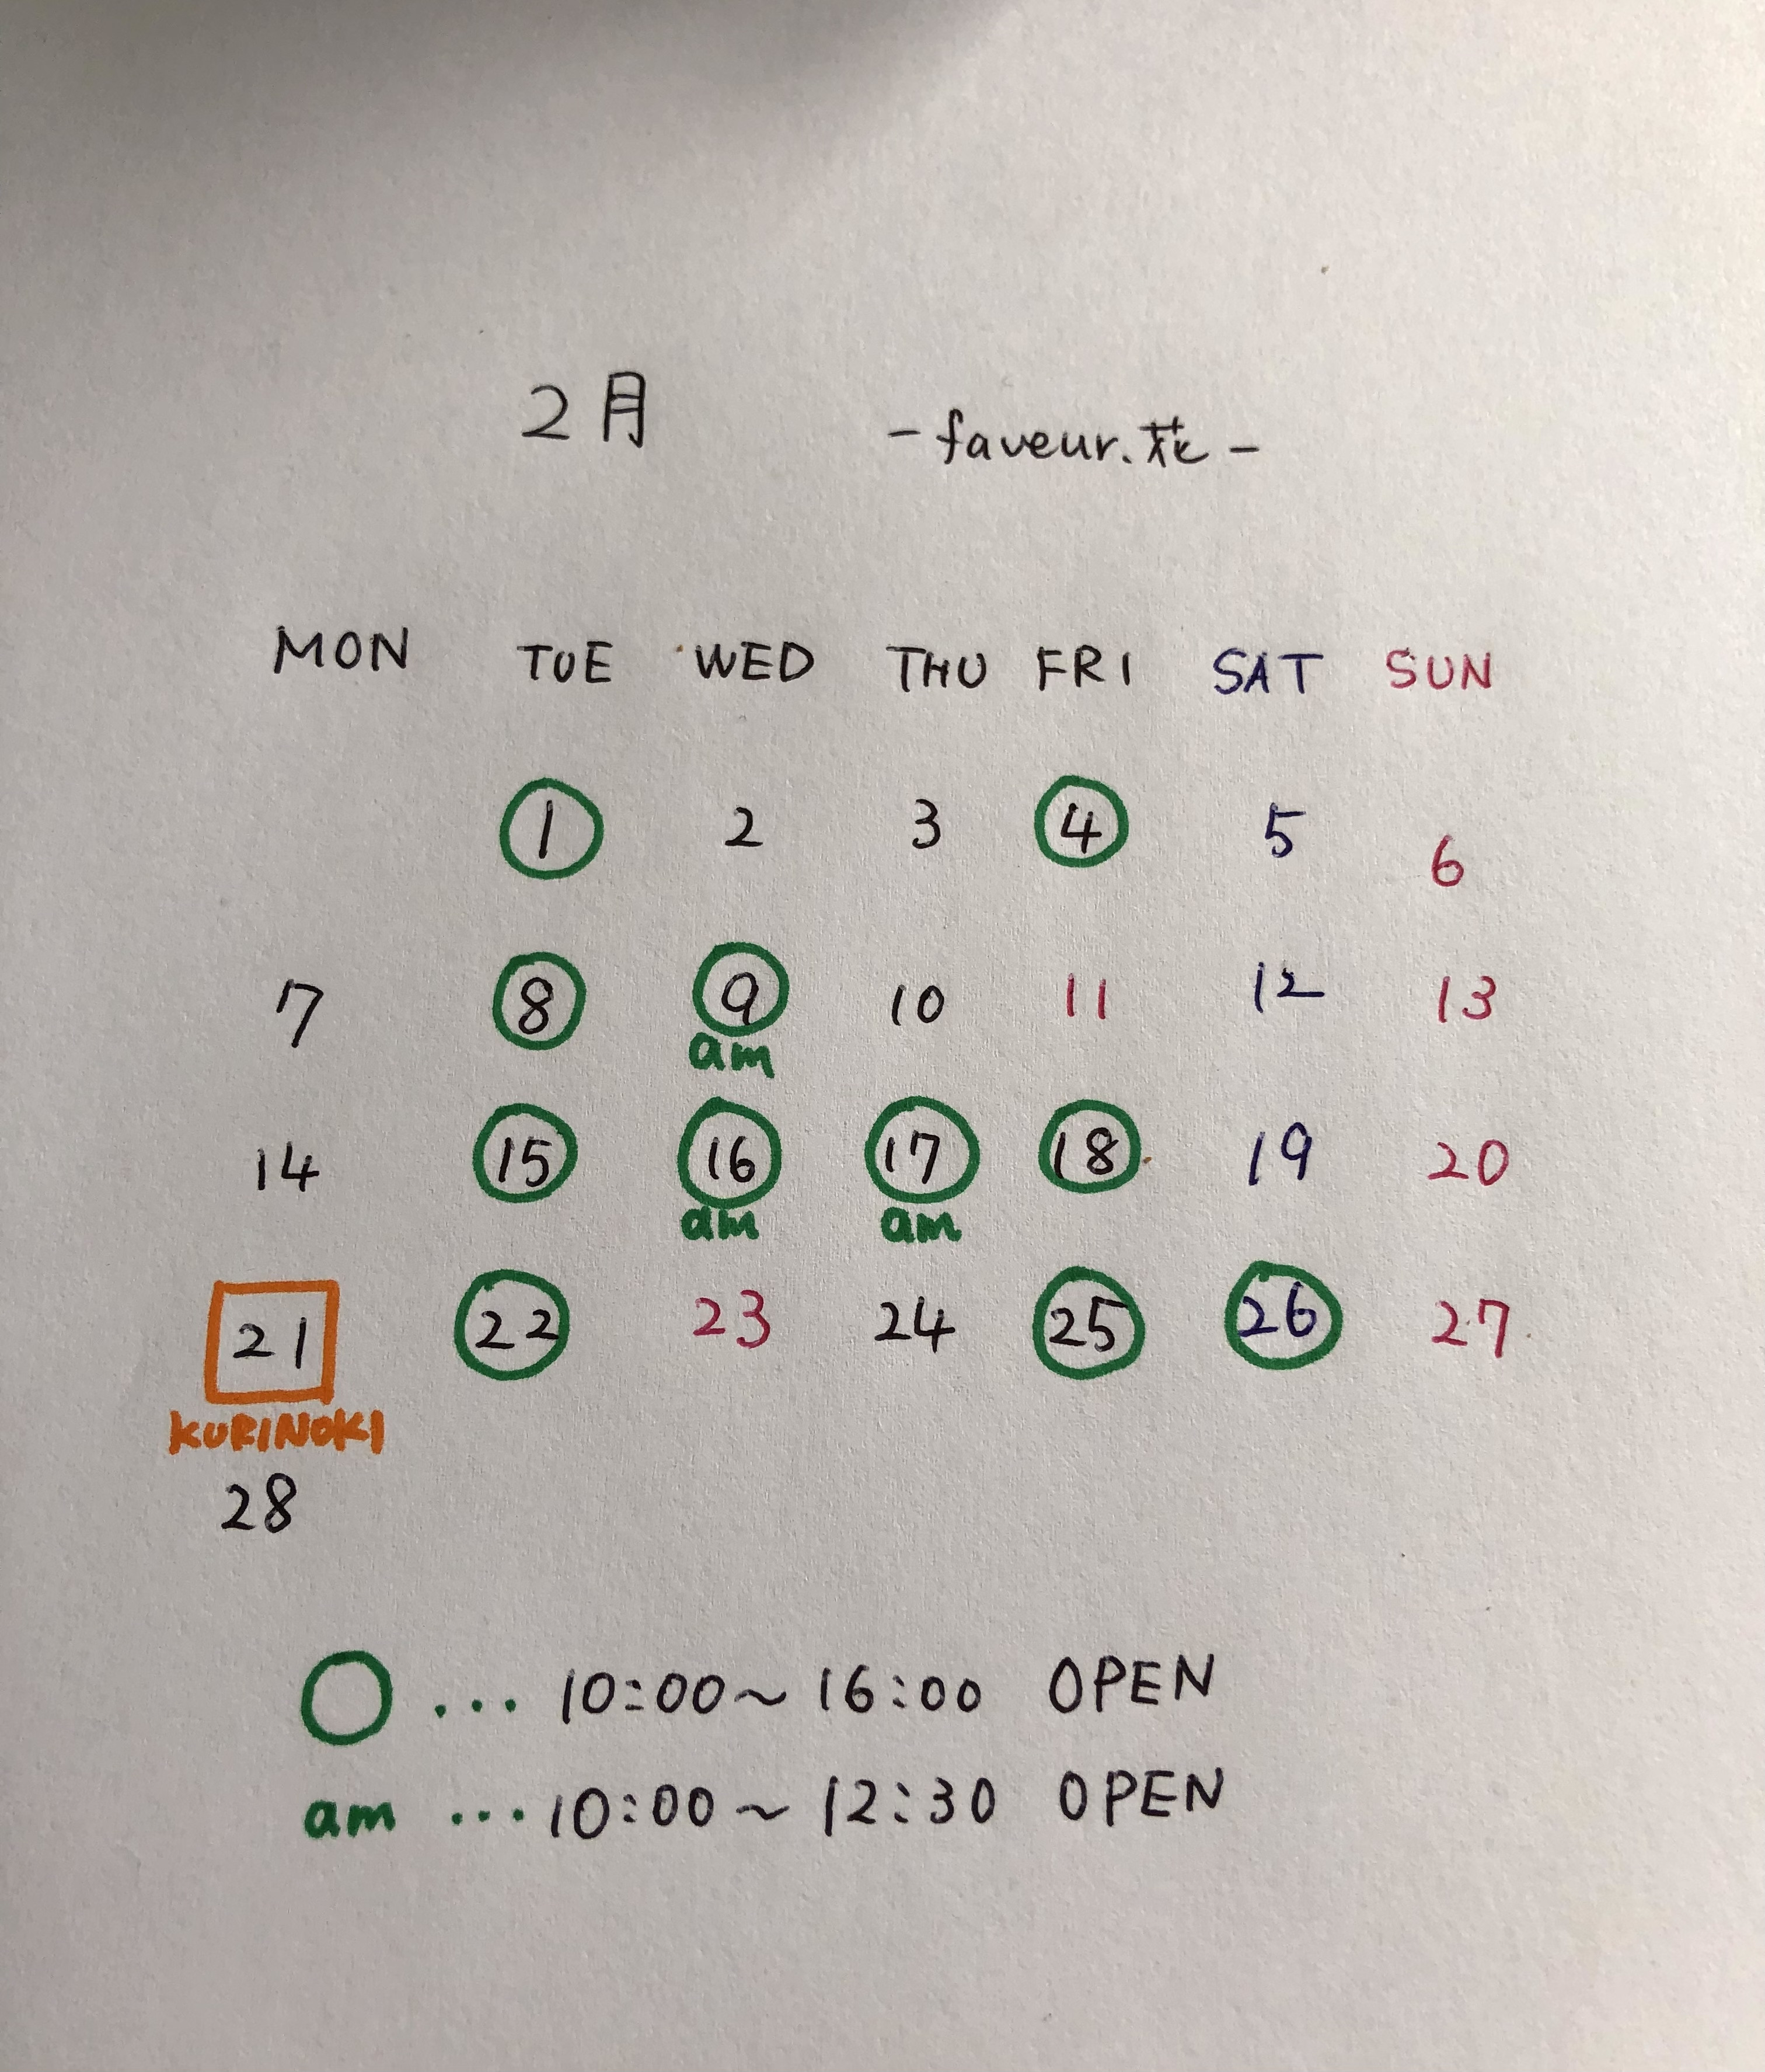 2月 -faveur.花-
MON TUE WED THU FRI SAT SUN
1 2 3 4 5 6
7 8 9 10 11 12 13
am
14 15 16 17 18 19 20
am am
21 22 23 24 25 26 27
KURINOKI
28
○ ... 10:00～16:00 OPEN
am ... 10:00～12:30 OPEN